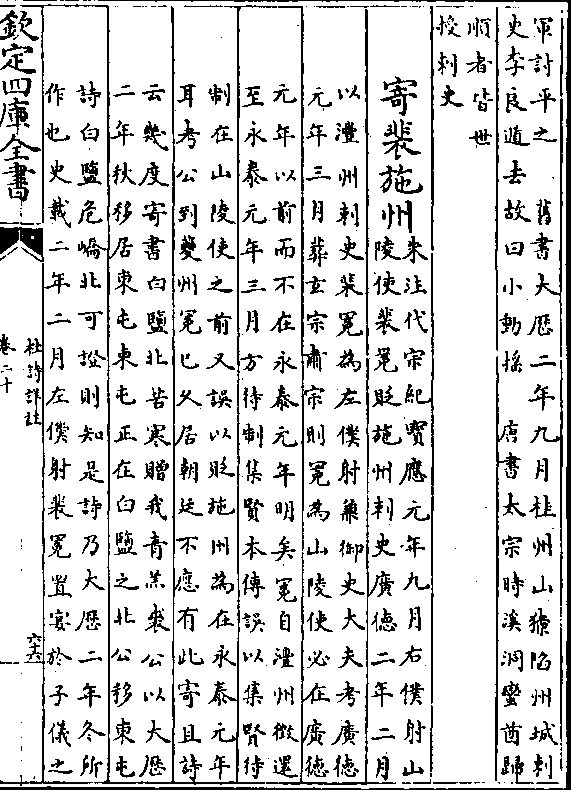 軍討平之　舊書大歷二年九月桂州山獠陷州城刺
史李良遁去故曰小動揺　唐書太宗時溪洞蠻酋歸
順者皆世
授刺史
寄裴施州朱注代宗紀寳應元年九月右僕射山
陵使裴冕貶施州刺史廣德二年二月
以澧州刺史裴冕為左僕射兼御史大夫考廣德
元年三月葬玄宗肅宗則冕為山陵使必在廣德
元年以前而不在永泰元年明矣冕自澧州徴還
至永泰元年三月方待制集賢本傳誤以集賢待
制在山陵使之前又誤以貶施州為在永泰元年
耳考公到夔州冕已久居朝廷不應有此寄且詩
云幾度寄書白鹽北苦寒贈我青羔裘公以大歴
二年秋移居東屯東屯正在白鹽之北公移東屯
詩白鹽危嶠北可證則知是詩乃大歴二年冬所
作也史載二年二月左僕射裴冕置宴於子儀之
欽定四庫全書
杜詩詳註
卷二十
六十六